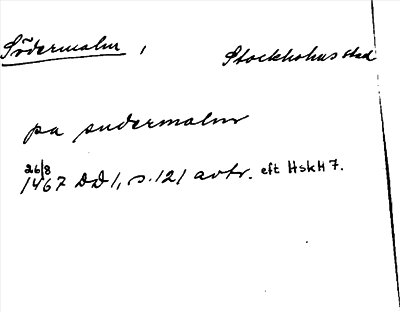 Södermalm, Stockholms stad
pa sudermalm
26/8
1467 DD 1, s. 121 avtr. eft HskH 7.